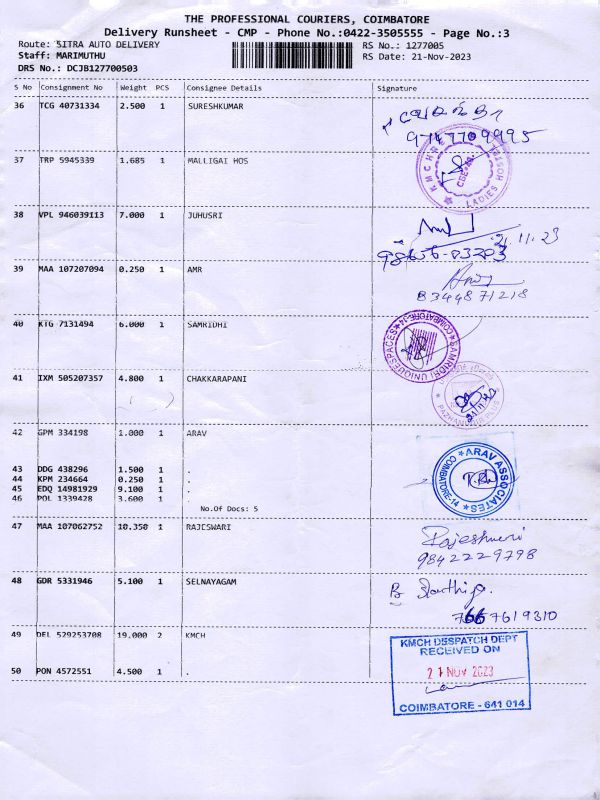 THE PROFESSIONAL COURIERS, COIMBATORE
Delivery Runsheet - CMP - Phone No.:0422-3505555 - Page No.:3
Route: SITRA AUTO DELIVERY RS No.: 1277005
Staff: MARIMUTHU RS Date: 21-Nov-2023
DRS No.: DCJB127700503
S No Consignment No Weight PCS Consignee Details Signature
36 TCG 40731334 2.500 1 SURESHKUMAR
37 TRP 5945339 1.685 1 MALLIGAI HOS
KMCHRE LADIES HOSTEL
38 VPL 946039113 7.000 1 JUHUSRI
21.11.23
39 MAA 107207094 0.250 1 AMR
8344871218
40 KTG 7131494 6.000 1 SAMRIDHI
SAMRIDHI UNIQUESPACES COIMBATORE-14
41 IXM 505207357 4.800 1 CHAKKARAPANI
42 GPM 334198 1.000 1 ARAV
ARAV ASSOCIATES COIMBATORE-14
43 DDG 438296 1.500 1 .
44 KPM 234664 0.250 1 .
45 EDQ 14981929 9.100 1 .
46 POL 1339428 3.600 1 .
No.Of Docs: 5
47 MAA 107062752 10.350 1 RAJESWARI
Rajeshweri
9842229798
48 GDR 5331946 5.100 1 SELNAYAGAM
7667619310
49 DEL 529253708 19.000 2 KMCH
KMCH DESPATCH DEPT
RECEIVED ON
21 NOV 2023
COIMBATORE - 641 014
50 PON 4572551 4.500 1 .